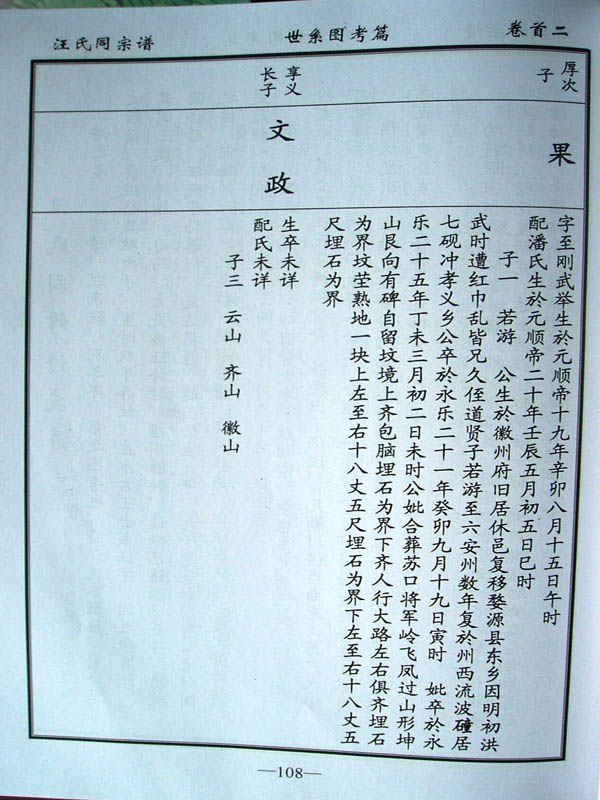 汪氏同宗谱
世系图考篇
卷首二
厚次
子
果
字至刚武举生於元顺帝十九年辛卯八月十五日午时
配潘氏生於元顺帝二十年壬辰五月初五日巳时
子一 若游 公生於徽州府旧居休邑复移婺源县东乡因明初洪
武时遭红巾乱皆兄久侄道贤子若游至六安州数年复於州西流波䃥居
七砚冲孝义乡公卒於永乐二十一年癸卯九月十九日寅时 妣卒於永
乐二十五年丁未三月初二日未时公妣合葬苏口将军岭飞凤过山形坤
山艮向有碑自留坟境上齐包脑埋石为界下齐人行大路左右俱齐埋石
为界坟茔熟地一块上左至右十八丈五尺埋石为界下左至右十八丈五
尺埋石为界
享义
长子
文政
生卒未详
配氏未详
子三 云山 齐山 徽山
—108—